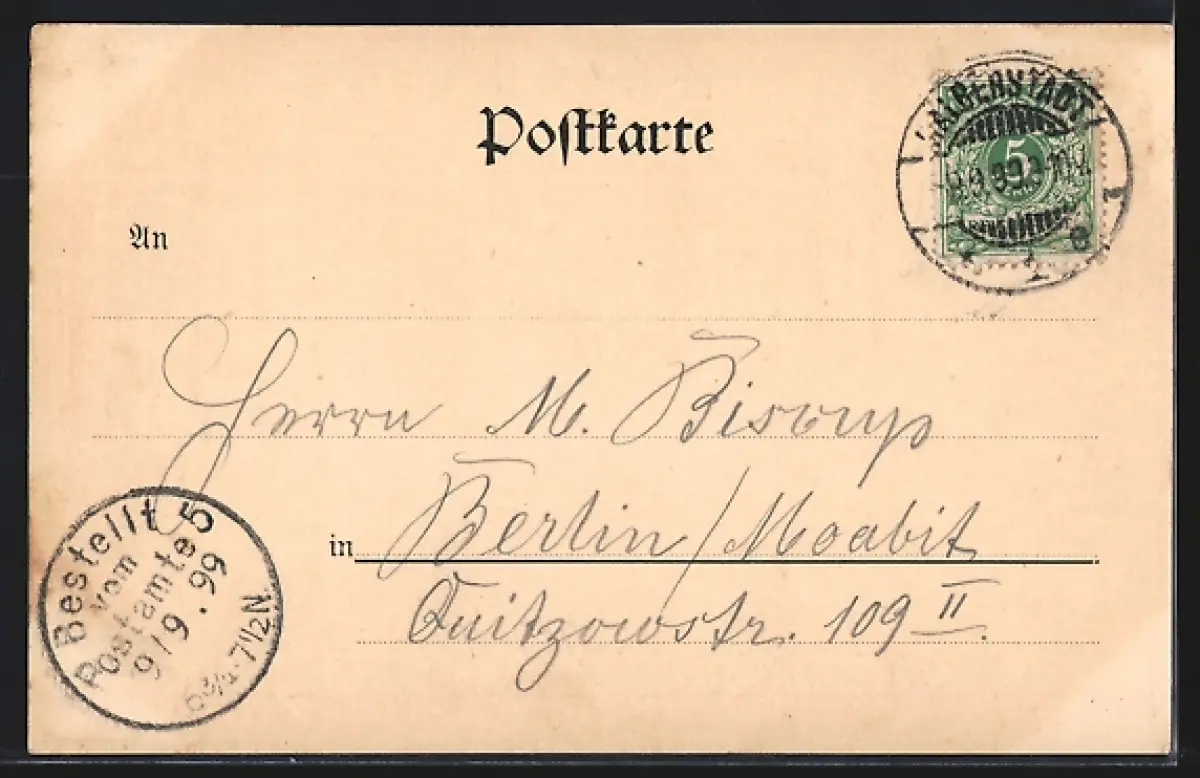 Postkarte
HALBERSTADT
9.9.99.9-10V.
* 1 e
5
An
Herrn M. Biscoup
in Berlin/Moabit
Quitzowstr. 109 II.
Bestellt
vom
Postamte 5
9/9.99
6¾-7½N